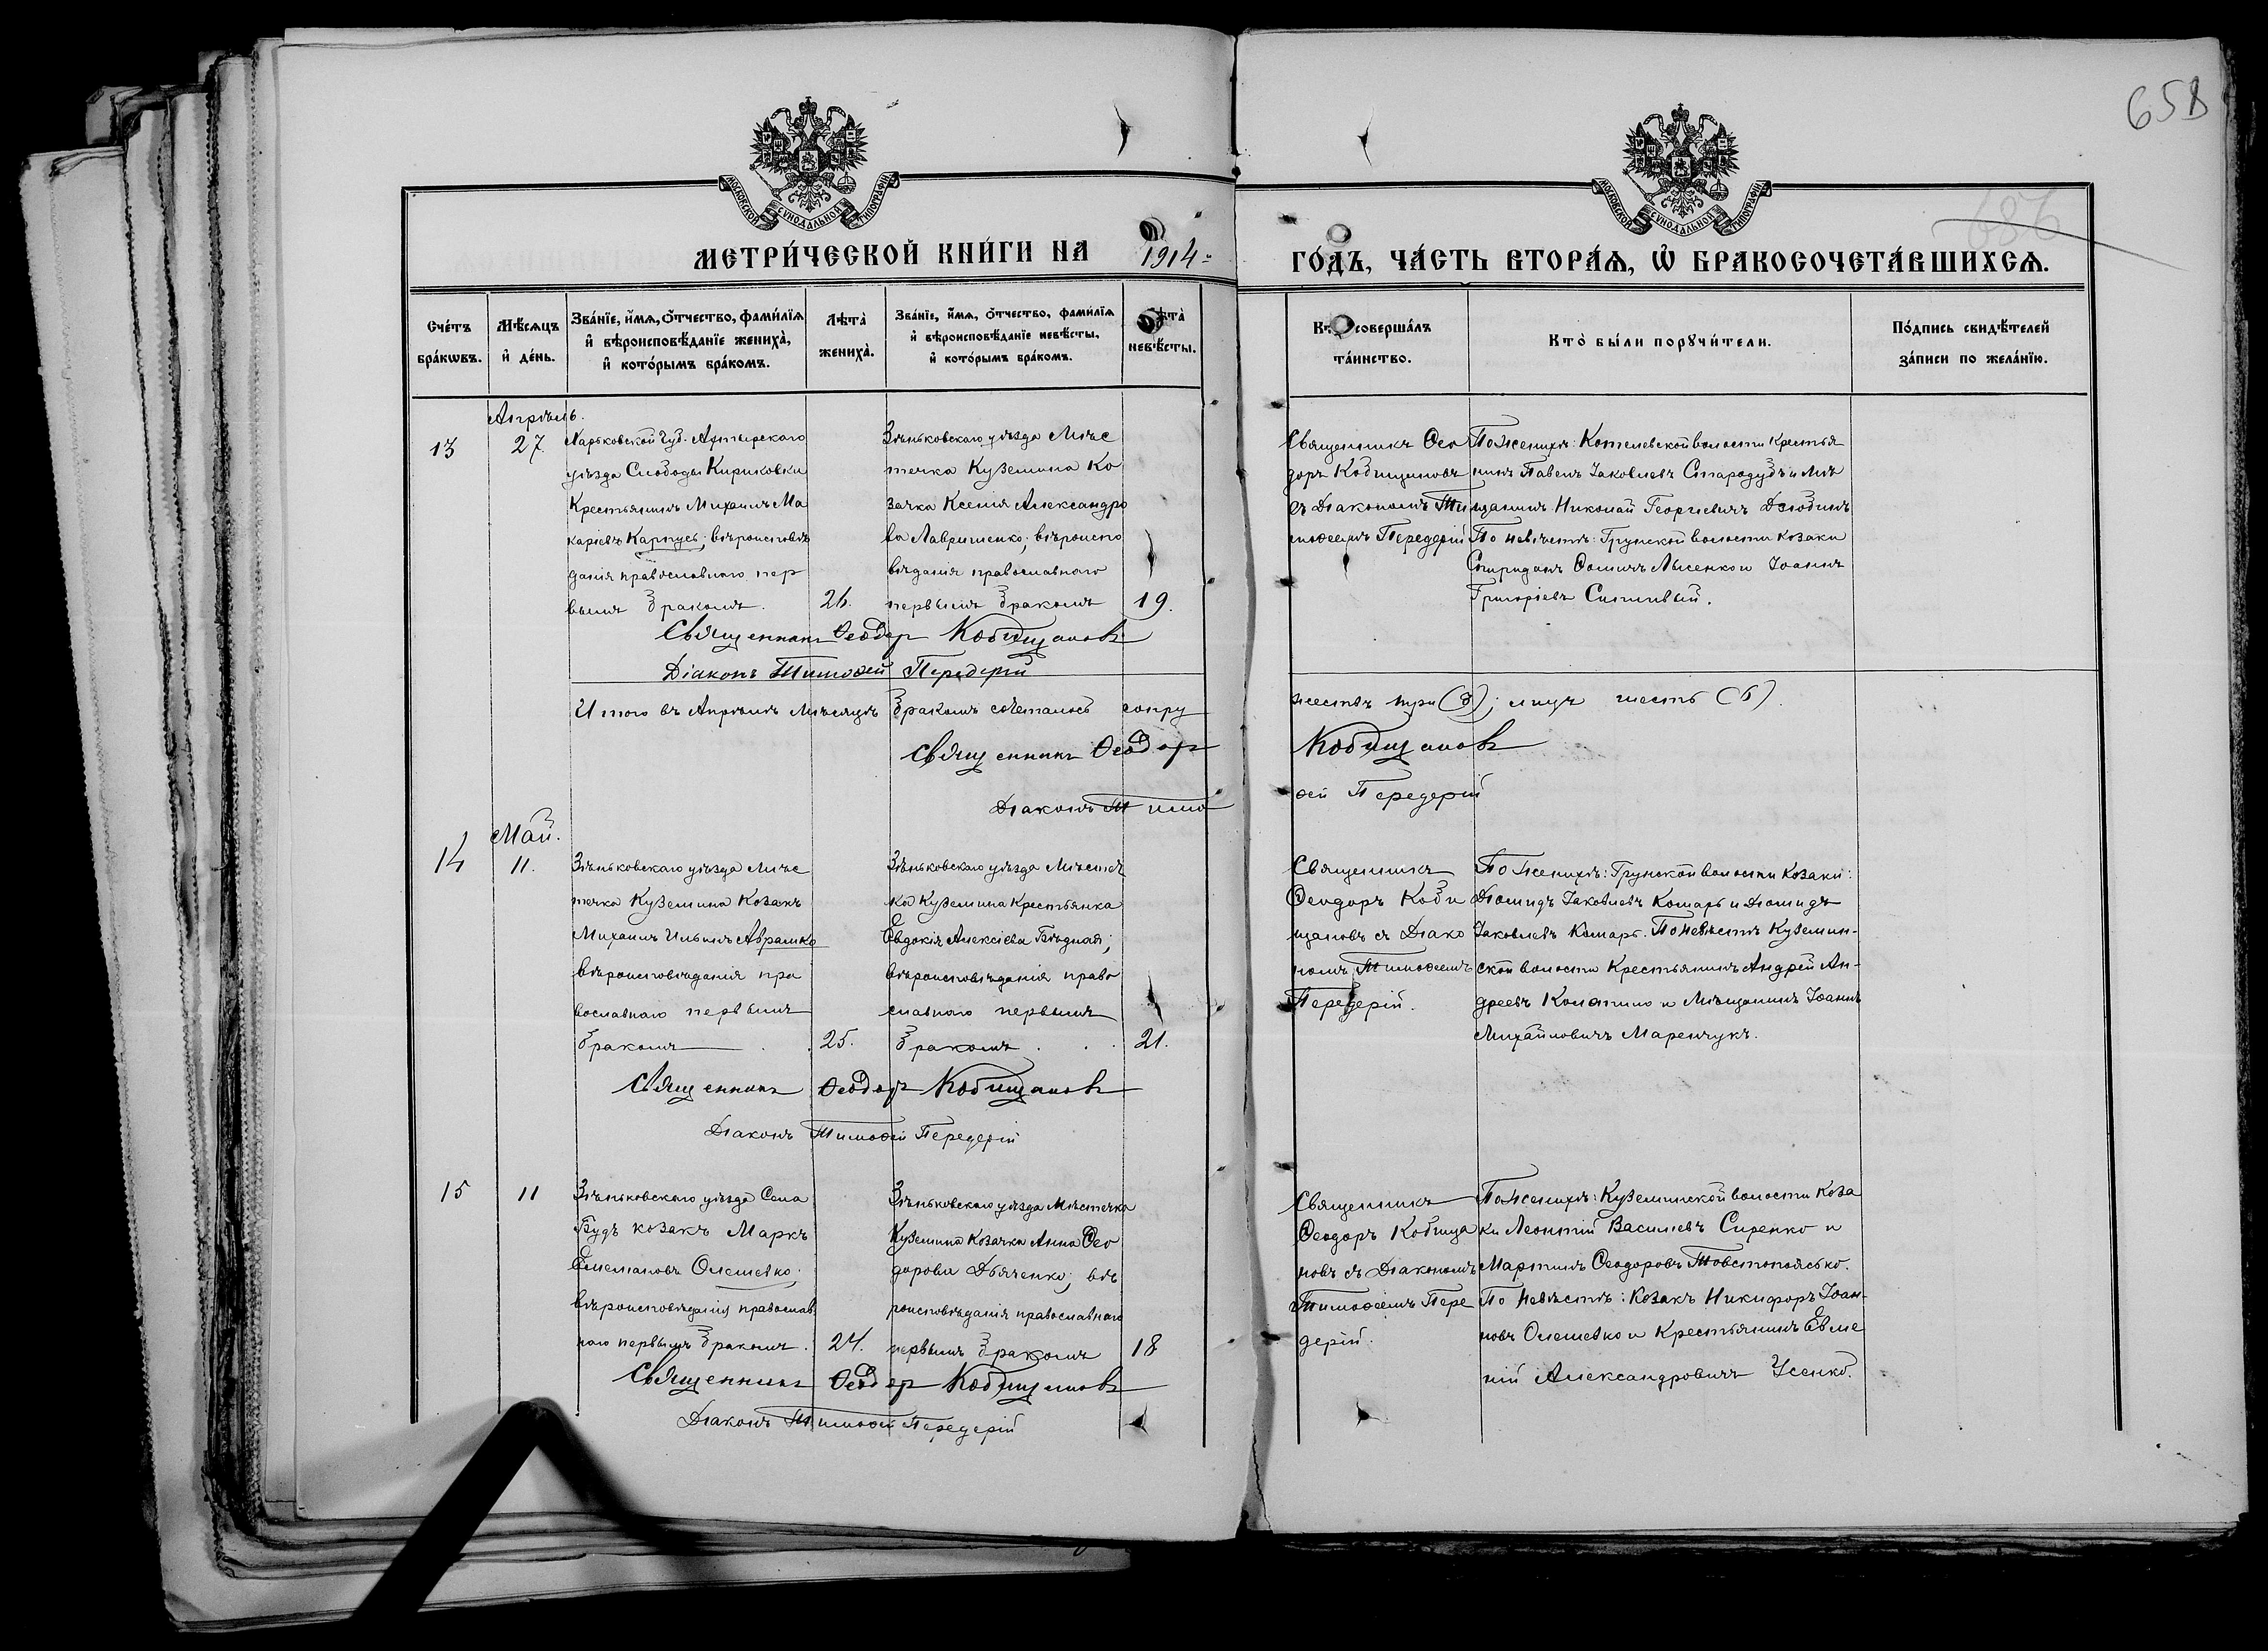 658
МОСКОВСКОЙ СѴНОДАЛЬНОЙ ТИПОГРАФІИ
МОСКОВСКОЙ СѴНОДАЛЬНОЙ ТИПОГРАФІИ
МЕТРИ́ЧЕСКОЙ КНИ́ГИ НА 1914 ГО́ДЪ, ЧА́СТЬ ВТОРА́Ѧ, Ѡ҆ БРАКОСОЧЕТА́ВШИХСѦ.
Сче́тъ бра́кѡвъ.
Мѣ́сѧцъ и҆ де́нь.
Зва́нїе, и҆́мѧ, ѻ҆́тчество, фами́лїѧ
и҆ вѣроисповѣ́данїе жениха̀,
и҆ кото́рымъ бра́комъ.
Лѣта̀ жениха̀.
Зва́нїе, и҆́мѧ, ѻ҆́тчество, фами́лїѧ
и҆ вѣроисповѣ́данїе невѣ́сты,
и҆ кото́рымъ бра́комъ.
Лѣта̀ невѣ́сты.
Кто̀ соверша́лъ
та́инство.
Кто̀ бы́ли порꙋчи́тели.
По́дпись свидѣ́телей
за́писи по жела́нїю.
Апрѣль.
13
27.
Харьковской губ. Ахтырскаго
уѣзда Слободы Кириковки
Крестьянинъ Михаилъ Ма
каріевъ Карпусь; вѣроисповѣ
данія православнаго пер
вымъ бракомъ.
26.
Зѣньковскаго уѣзда Мѣс
течка Куземина Ко
зачка Ксенія Александро
ва Лавришенко; вѣроиспо
вѣданія православнаго
первымъ бракомъ
19.
Священникъ Ѳео
доръ Кобищановъ
съ Діакономъ Ти
моѳеемъ Передерій
По женихѣ: Котелевской волости крестья
нинъ Павелъ Іаковлевъ Стародубъ и мѣ
щанинъ Николай Георгіевичъ Дзюбинъ
По невѣстѣ: Грунской волости козаки
Спиридонъ Ѳоминъ Лысенко и Іоаннъ
Григоріевъ
Священникъ Ѳеодоръ Кобищановъ
Діаконъ Тимоѳей Передерій
Итого въ Апрѣлѣ мѣсяцѣ бракомъ сочеталось супру
жествъ три (3); лицъ шесть (6).
Священникъ Ѳеодоръ Кобищановъ
Діаконъ Тимо
ѳей Передерій
Май.
14
11.
Зѣньковскаго уѣзда Мѣс
течка Куземина Козакъ
Михаилъ Ильинъ Аврамко
вѣроисповѣданія пра
вославнаго первымъ
бракомъ
25.
Зѣньковскаго уѣзда Мѣстеч
ка Куземина Крестьянка
Евдокія Алексіева Бѣдная;
вѣроисповѣданія право
славнаго первымъ
бракомъ
21.
Священникъ
Ѳеодоръ Коби
щановъ съ Діако
номъ Тимоѳеемъ
Передерій.
По женихѣ: Грунской волости козаки:
Діомидъ Іаковлевъ Комаръ и Діомидъ
Іаковлевъ Комаръ. По невѣстѣ Куземин-
ской волости Крестьянинъ Андрей Ан-
дреевъ и Мѣщанинъ Іоаннъ
Михайловичъ Маренчукъ.
Священникъ Ѳеодоръ Кобищановъ
Діаконъ Тимоѳей Передерій
15
11
Зѣньковскаго уѣзда Села
Будъ козакъ Маркъ
Емеліановъ Олешко;
вѣроисповѣданія православ
наго первымъ бракомъ.
24.
Зѣньковскаго уѣзда Мѣстечка
Куземина Козачка Анна Ѳео
дорова Дьяченко; вѣ
роисповѣданія православнаго
первымъ бракомъ
18
Священникъ
Ѳеодоръ Кобища
новъ съ Діакономъ
Тимоѳеемъ Пере
дерій.
По женихѣ: Куземинской волости Коза
ки Леонтій Василіевъ Сиренко и
Мартинъ Ѳеодоровъ Товстопоясько.
По невѣстѣ: Козакъ Никифоръ Іоан-
новъ Олешко и Крестьянинъ Евме
ній Александровичъ Усенко.
Священникъ Ѳеодоръ Кобищановъ
Діаконъ Тимоѳей Передерій